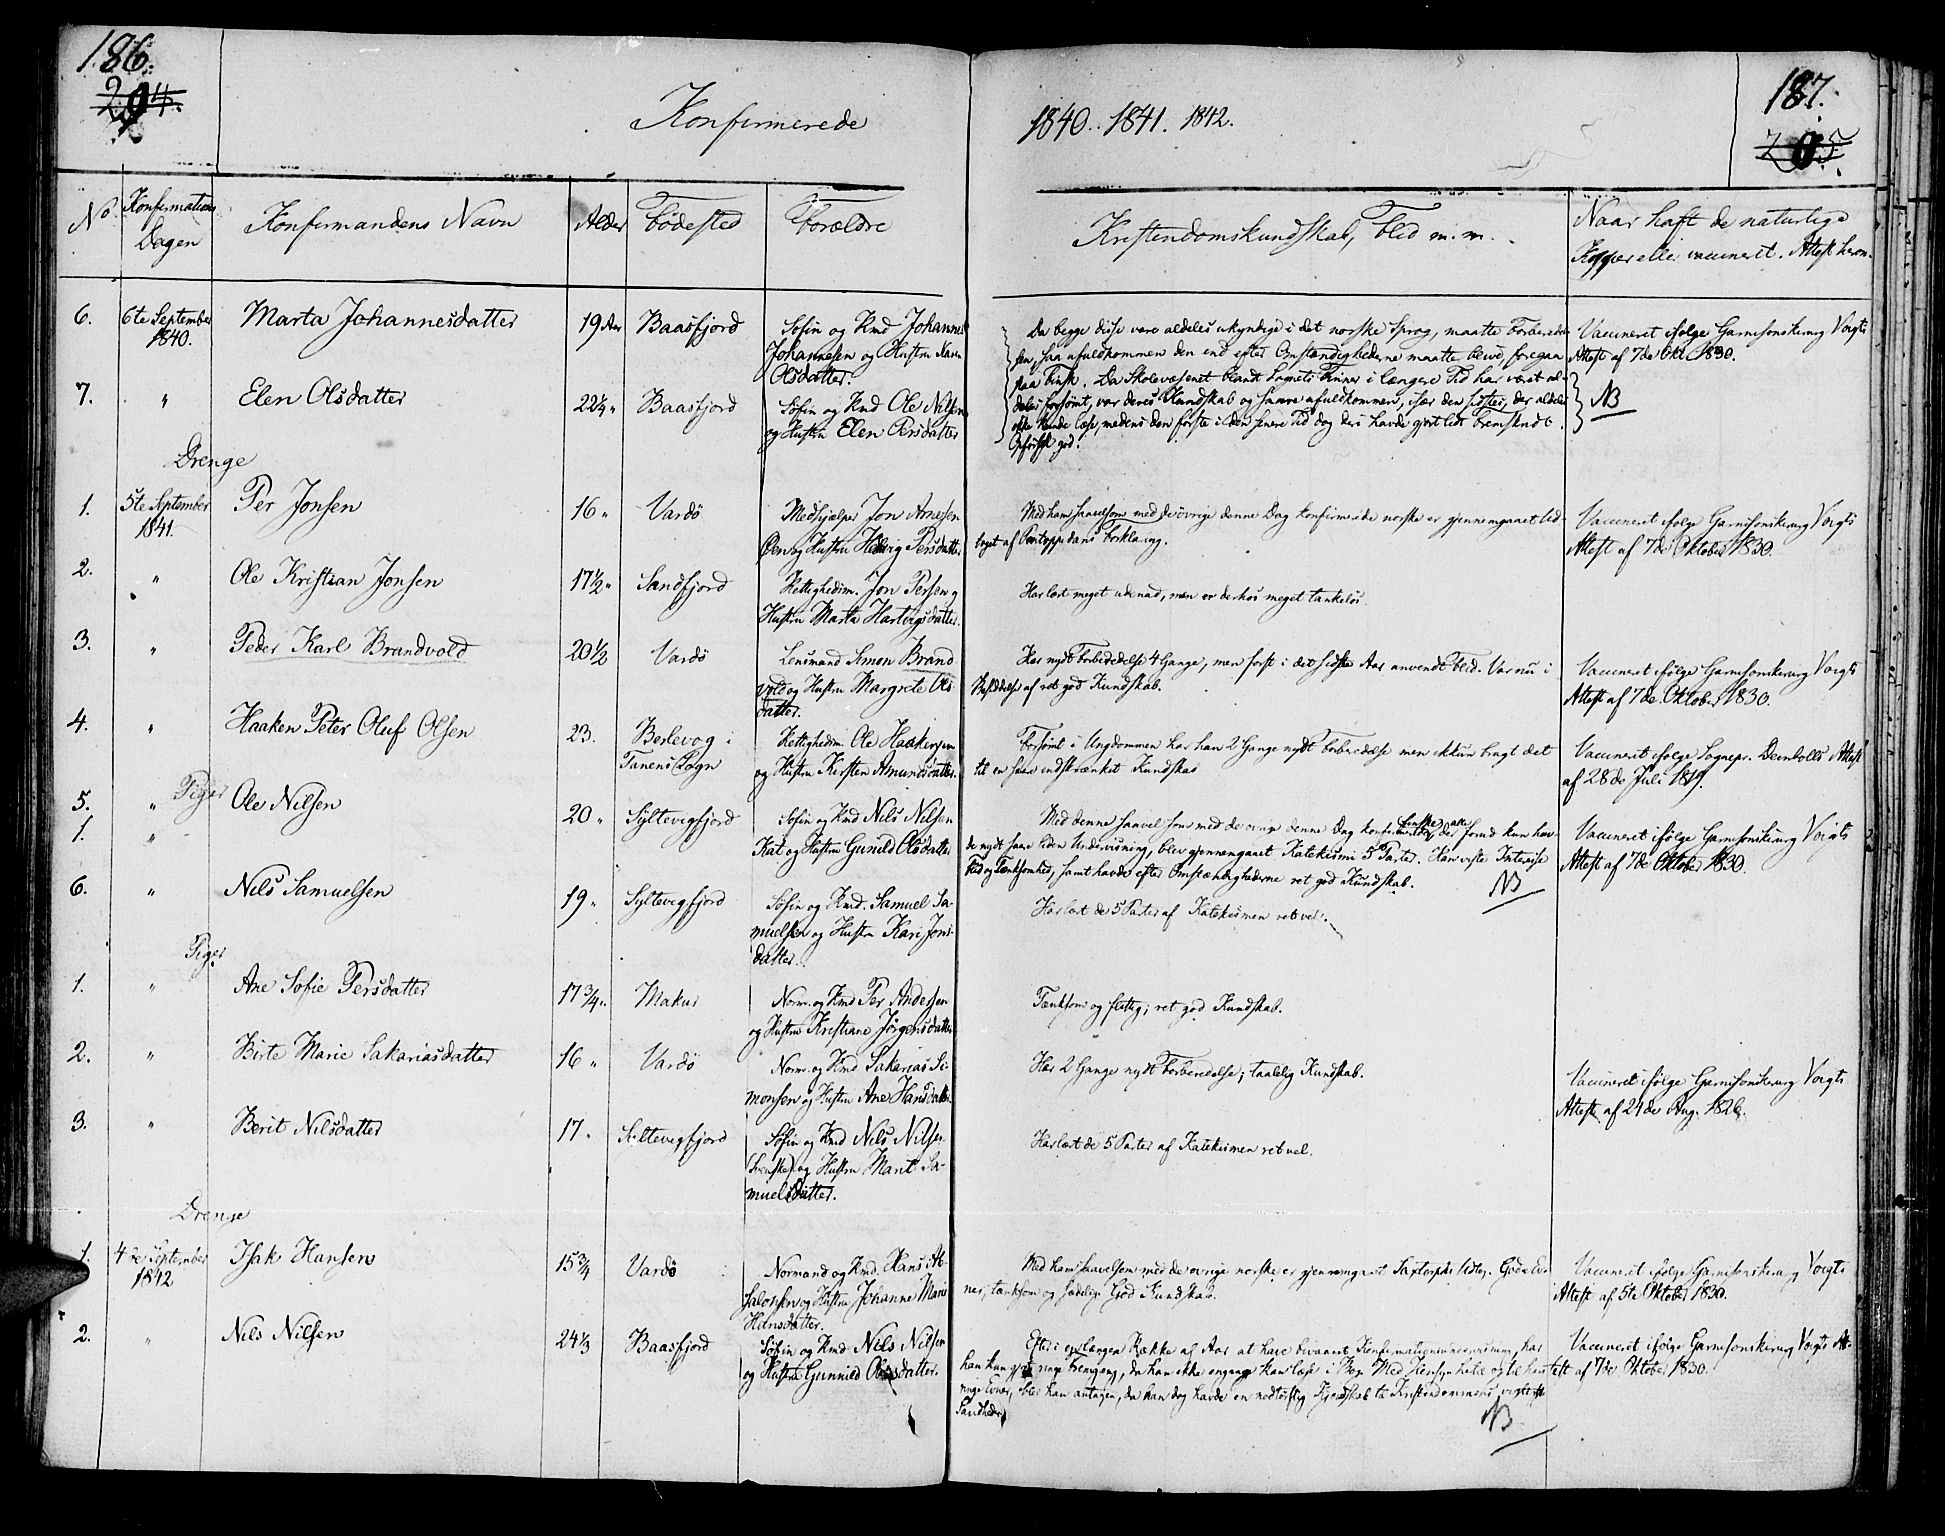 186.
204.
Konfirmerede
No
Konfirmations
Dagen
Konfirmandens Navn
Alder
Fødested
Forældre
6.
6te September
1840.
Marta Johannesdatter
19 Aar
Baasfjord
Søfin og Kmd Johannes
Johannesen og Hustru Maren
Olsdatter.
7.
"
Elen Olsdatter
22¼ "
Baasfjord
Søfin og Kmd Ole Nilsen
og Hustru Elen Persdatter
Drenge
1.
5te September
1841.
Per Jonsen
16 "
Vardö
Medhjelper Jon Arnesen
Øen og Hustru Hedvig Persdatter.
2.
"
Ole Kristian Jonsen
17½ "
Sandfjord
Rettighedsm. Jon Persen og
Hustru Marta Hartvigsdatter.
3.
"
Peder Karl Brandvold
20½
Vardö
Lensmand Simon Brand
vold og Hustru Margrete Ols
datter.
4.
"
Haaken Peter Oluf Olsen
23.
Berlevog i
Tanens Sogn
Rettighedsm. Ole Haakensen
og Hustru Kirsten Amundsdatter.
Piger
5.
"
Ole Nilsen
20 "
Syltevigfjord
Søfin og Kmd Nils Nilsen
Kat og Hustru Gunild Olsdatter
1.
"
6.
"
Nils Samuelsen
19 "
Syltevigfjord
Søfin og Kmd. Samuel Sa-
muelsen og Hustru Kari Jons-
datter.
Piger
1.
"
Ane Sofie Persdatter
17¾ "
Makur
Norm. og Kmd Per Andersen
og Hustru Kristiane Jörgensdatter
2.
"
Birte Marie Sakariasdatter
16 "
Vardö
Norm. og Kmd Sakarias Si-
monsen og Hustru Ane Hansdatter.
3.
"
Berit Nilsdatter
17 "
Syltevigfjord
Søfin og Kmd Nils Nilsen
(Svenske) og Hustru Marit Sa-
muelsdatter.
Drenge
1.
4de September
1842
Isak Hansen
15¾
Vardö
Normand og Kmd. Hans Ab-
salonsen og Hustru Johanne Marie
Hansdatter.
2.
"
Nils Nilsen
24⅓
Baasfjord
Søfin og Kmd Nils Nilsen
og Hustru Gunnild Olsdatter.
187.
205.
1840. 1841. 1842.
Kristendomskundskab, Flid m. m.
Naar haft de naturlige
Kopper eller vaccineret. Attest herom.
Da begge disse vare aldeles ukyndige i det norske Sprog, maatte Forberedel-
sen, saa ufuldkommen den end efter Omstændighederne maatte blive, foregaa
paa Finsk. Da Skolevæsenet blandt Sognets Finner i længere Tid har været al-
deles forsømt, var deres Kundskab og saare ufuldkommen, især den sidstes, der aldeles
ikke kunde læse, medens den første i den senere Tid dog deri havde gjort lidt Fremskridt.
Opførsel god.
Vaccineret ifølge Garnisonskirurg Voigts
Attest af 7de Okt. 1830.
NB
Med ham saavelsom med de øvrige denne Dag konfirmerede norske er gjennemgaaet Ud-
toget af Pontoppidans Forklaring.
Vaccineret ifølge Garnisonskirurg Voigts
Attest af 7de Oktober 1830.
Har læst meget udenad, men er derhos meget tankeløs.
Har nydt Forberedelse 4 Gange, men først i det sidste Aar anvendt Flid. Var nu i
Besiddelse af ret god Kundskab.
Vaccineret ifølge Garnisonskirurg Voigts
Attest af 7de Oktober 1830.
Forsømt i Ungdommen har han 2 Gange nydt Forberedelse men ikkun bragt det
til en saare indskrænket Kundskab
Vaccineret ifølge Sognepr. Deinbolls Attest
af 28de Juli 1819.
Med denne saavelsom med de øvrige denne Dag konfirmerede finske, der alle forud kun hav-
de nydt saare liden Undervisning, blev gjennemgaaet Katekismi 5 Parter. Han viste Interesse
Flid og Tænksomhed, samt havde efter Omstændighederne ret god Kundskab.
NB
Vaccineret ifølge Garnisonskirurg Voigts
Attest af 7de Oktober 1830.
Har læst de 5 Parter af Katekismen ret vel.
Tænksom og flittig; ret god Kundskab.
Har 2 Gange nydt Forberedelse; taalelig Kundskab.
Vaccineret ifølge Garnisonskirurg Voigts
Attest af 24de Aug. 1826.
Har læst de 5 Parter af Katekismen ret vel.
Med ham saavelsom med de øvrige norske er gjennemgaaet Saxtorphs Udtog. Gode Ev-
ner, tænksom og sædelig. God Kundskab.
Vaccineret ifølge Garnisonskirurg Voigts
Attest af 5te Oktober 1830.
Efter i en længere Række af Aar at have bivaanet Konfirmationsundervisning, har
han kun gjort ringe Fremgang, da han ikke engang kan læse i Bog. Med Hensyn hertil og til hans
ringe Evner, blev han antagen, da han dog havde en nødtørftig Kjendskab til Kristendommens vigtigste
Sandheder.
NB
Vaccineret ifølge Garnisonskirurg Voigts At-
test af 7de Oktober 1830.